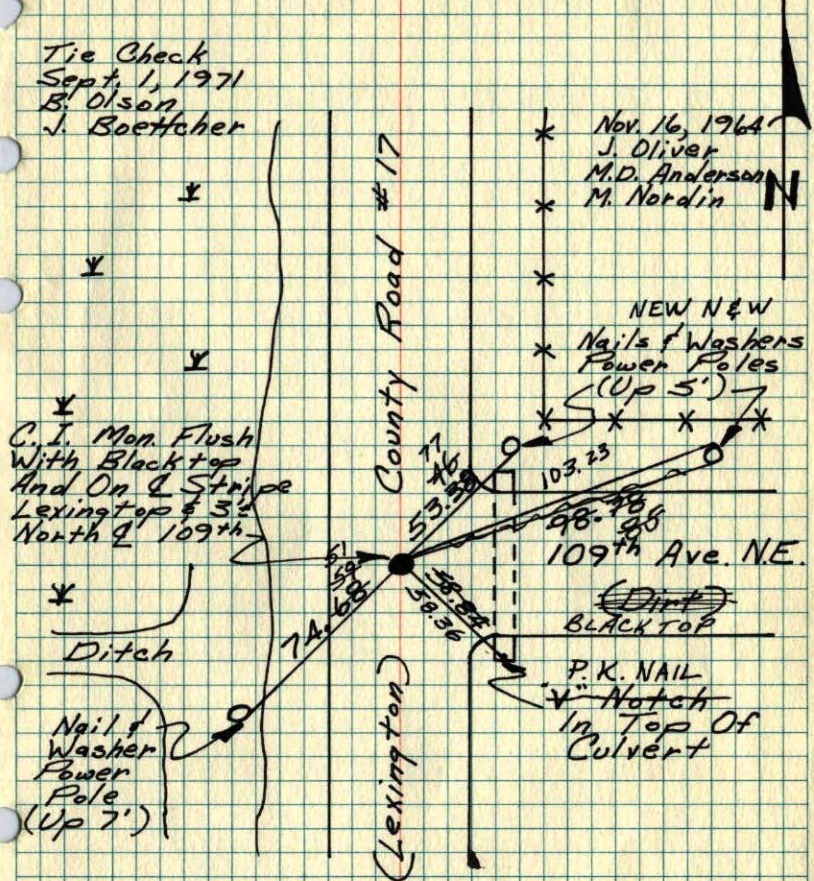 Tie Check
Sept. 1, 1971
B. Olson
J. Boettcher
Nov. 16, 1964
J. Oliver
M.D. Anderson
M. Nordin
N
County Road #17
NEW N & W
Nails & Washers
Power Poles
(Up 5')
C. I. Mon. Flush
With Blacktop
And On ℄ Stripe
North ℄ 109th
77
53.
103.23
98.
109th Ave. N.E.
(Dirt)
BLACKTOP
51
59
74.68
58.84
58.36
Ditch
P.K. NAIL
"V" Notch
In Top Of
Culvert
Nail &
Washer
Power
Pole
(Up 7')
(Lexington)